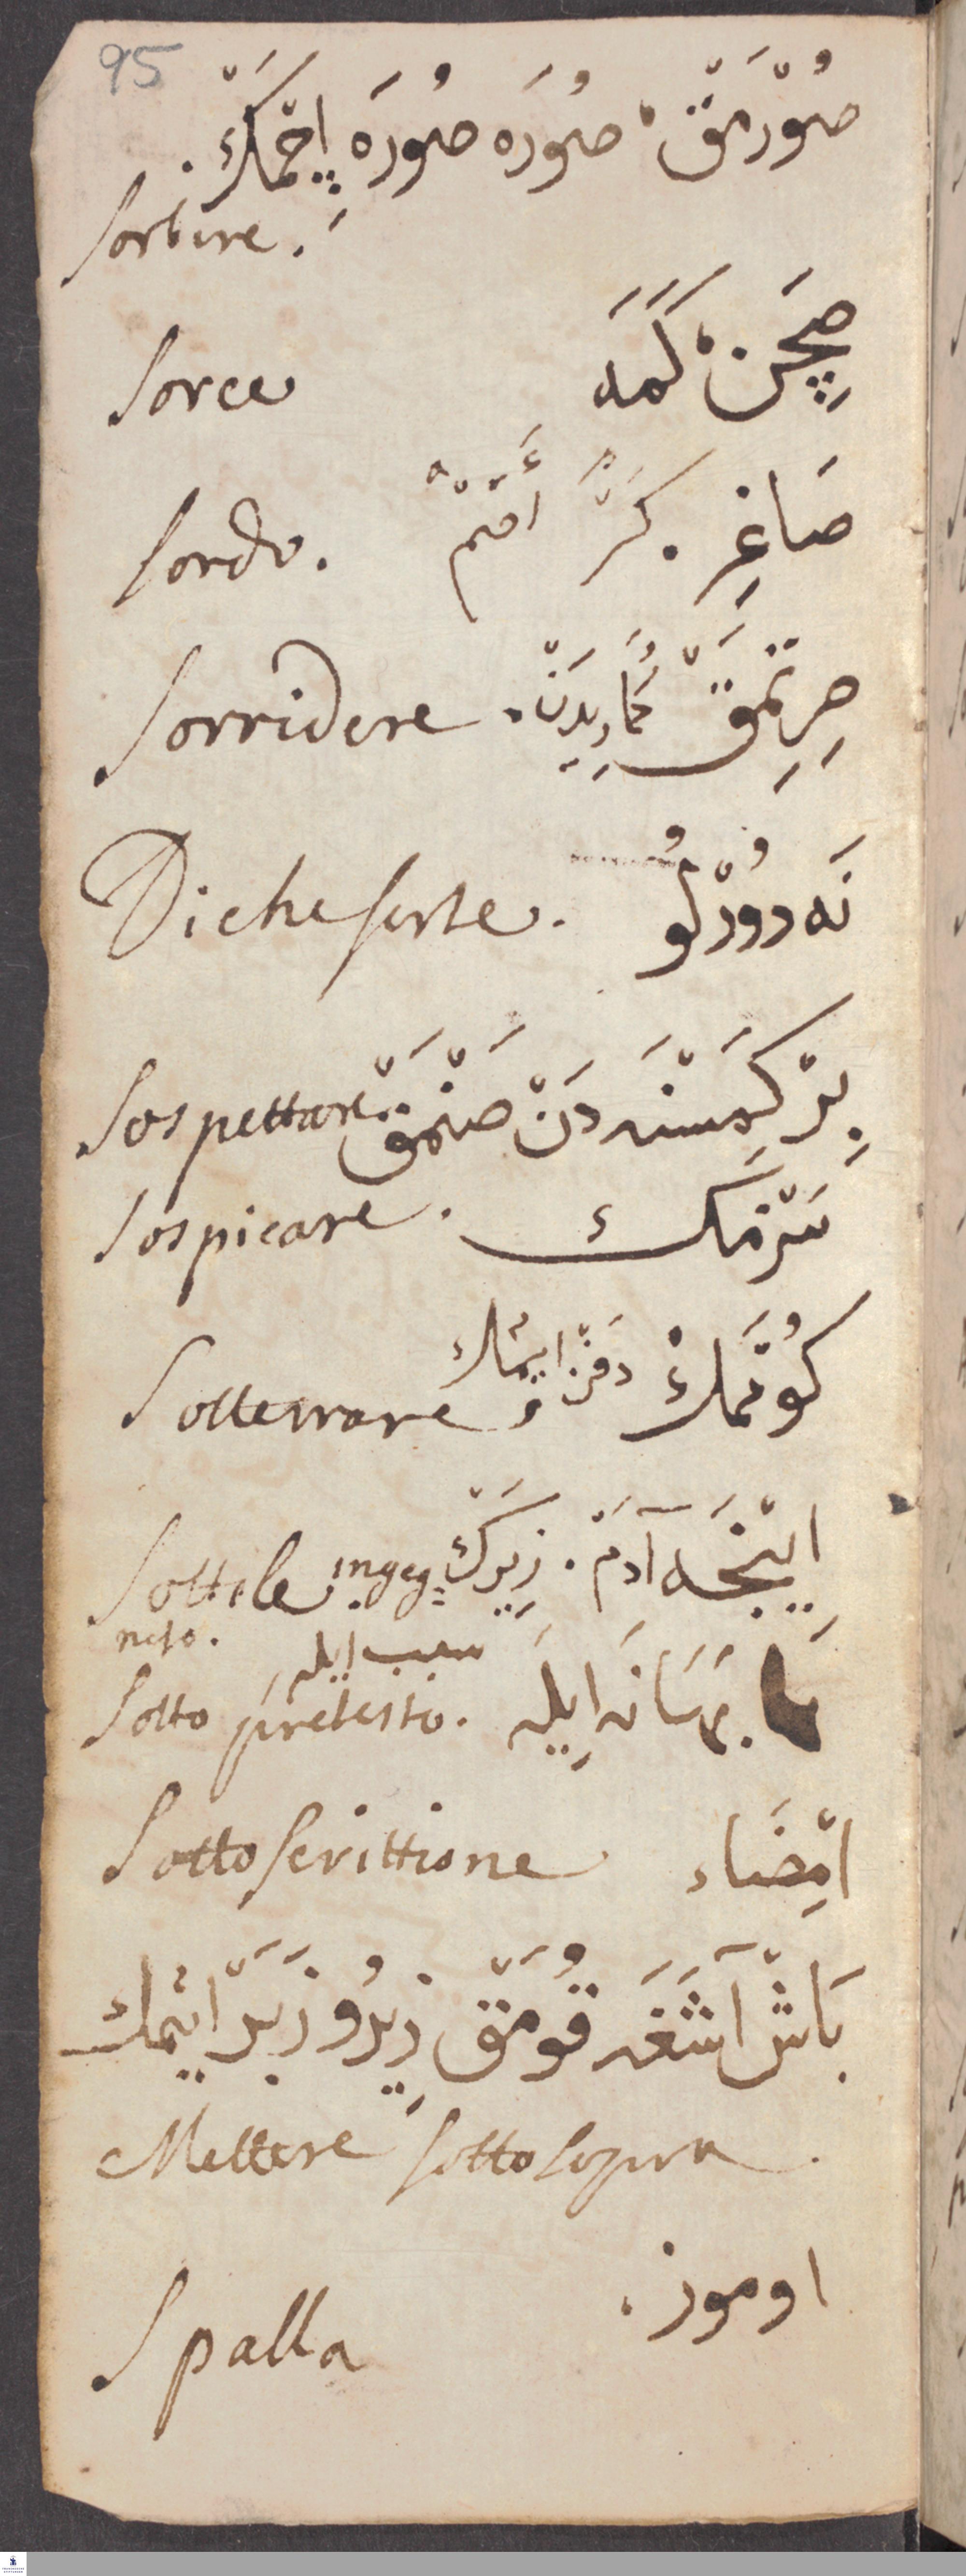 95
صُورْمَقْ، صُورَه صُورَه اِچْمَكْ.
Sorbire.
Sorce صِچَنْ، كَمَه
Sordo. صَاغِرْ. كَرْ أَصَمّ
Sorridere. صِرِتْمَقْ
Di che sorte. نَه دُورْلُو
Sospettare. بِرْ كِمْسَنَه دَنْ صَنْمَقْ
Sospicare. سَزْمَك
Sotterrare كُومْمَكْ دفن ايتمك
Sottile inge=. اِينْجَه آدَمْ. زِيرَكْ
nio.
سبب ايله
Sotto pretesto. بَهَانَه اِيلَه
Sottoscrittione اِمْضَاء
بَاشْ آشَغَه قُومَقْ زِيرُو زَبَرْ ايتمك
Mettere sotto sopra.
Spalla اوموز.